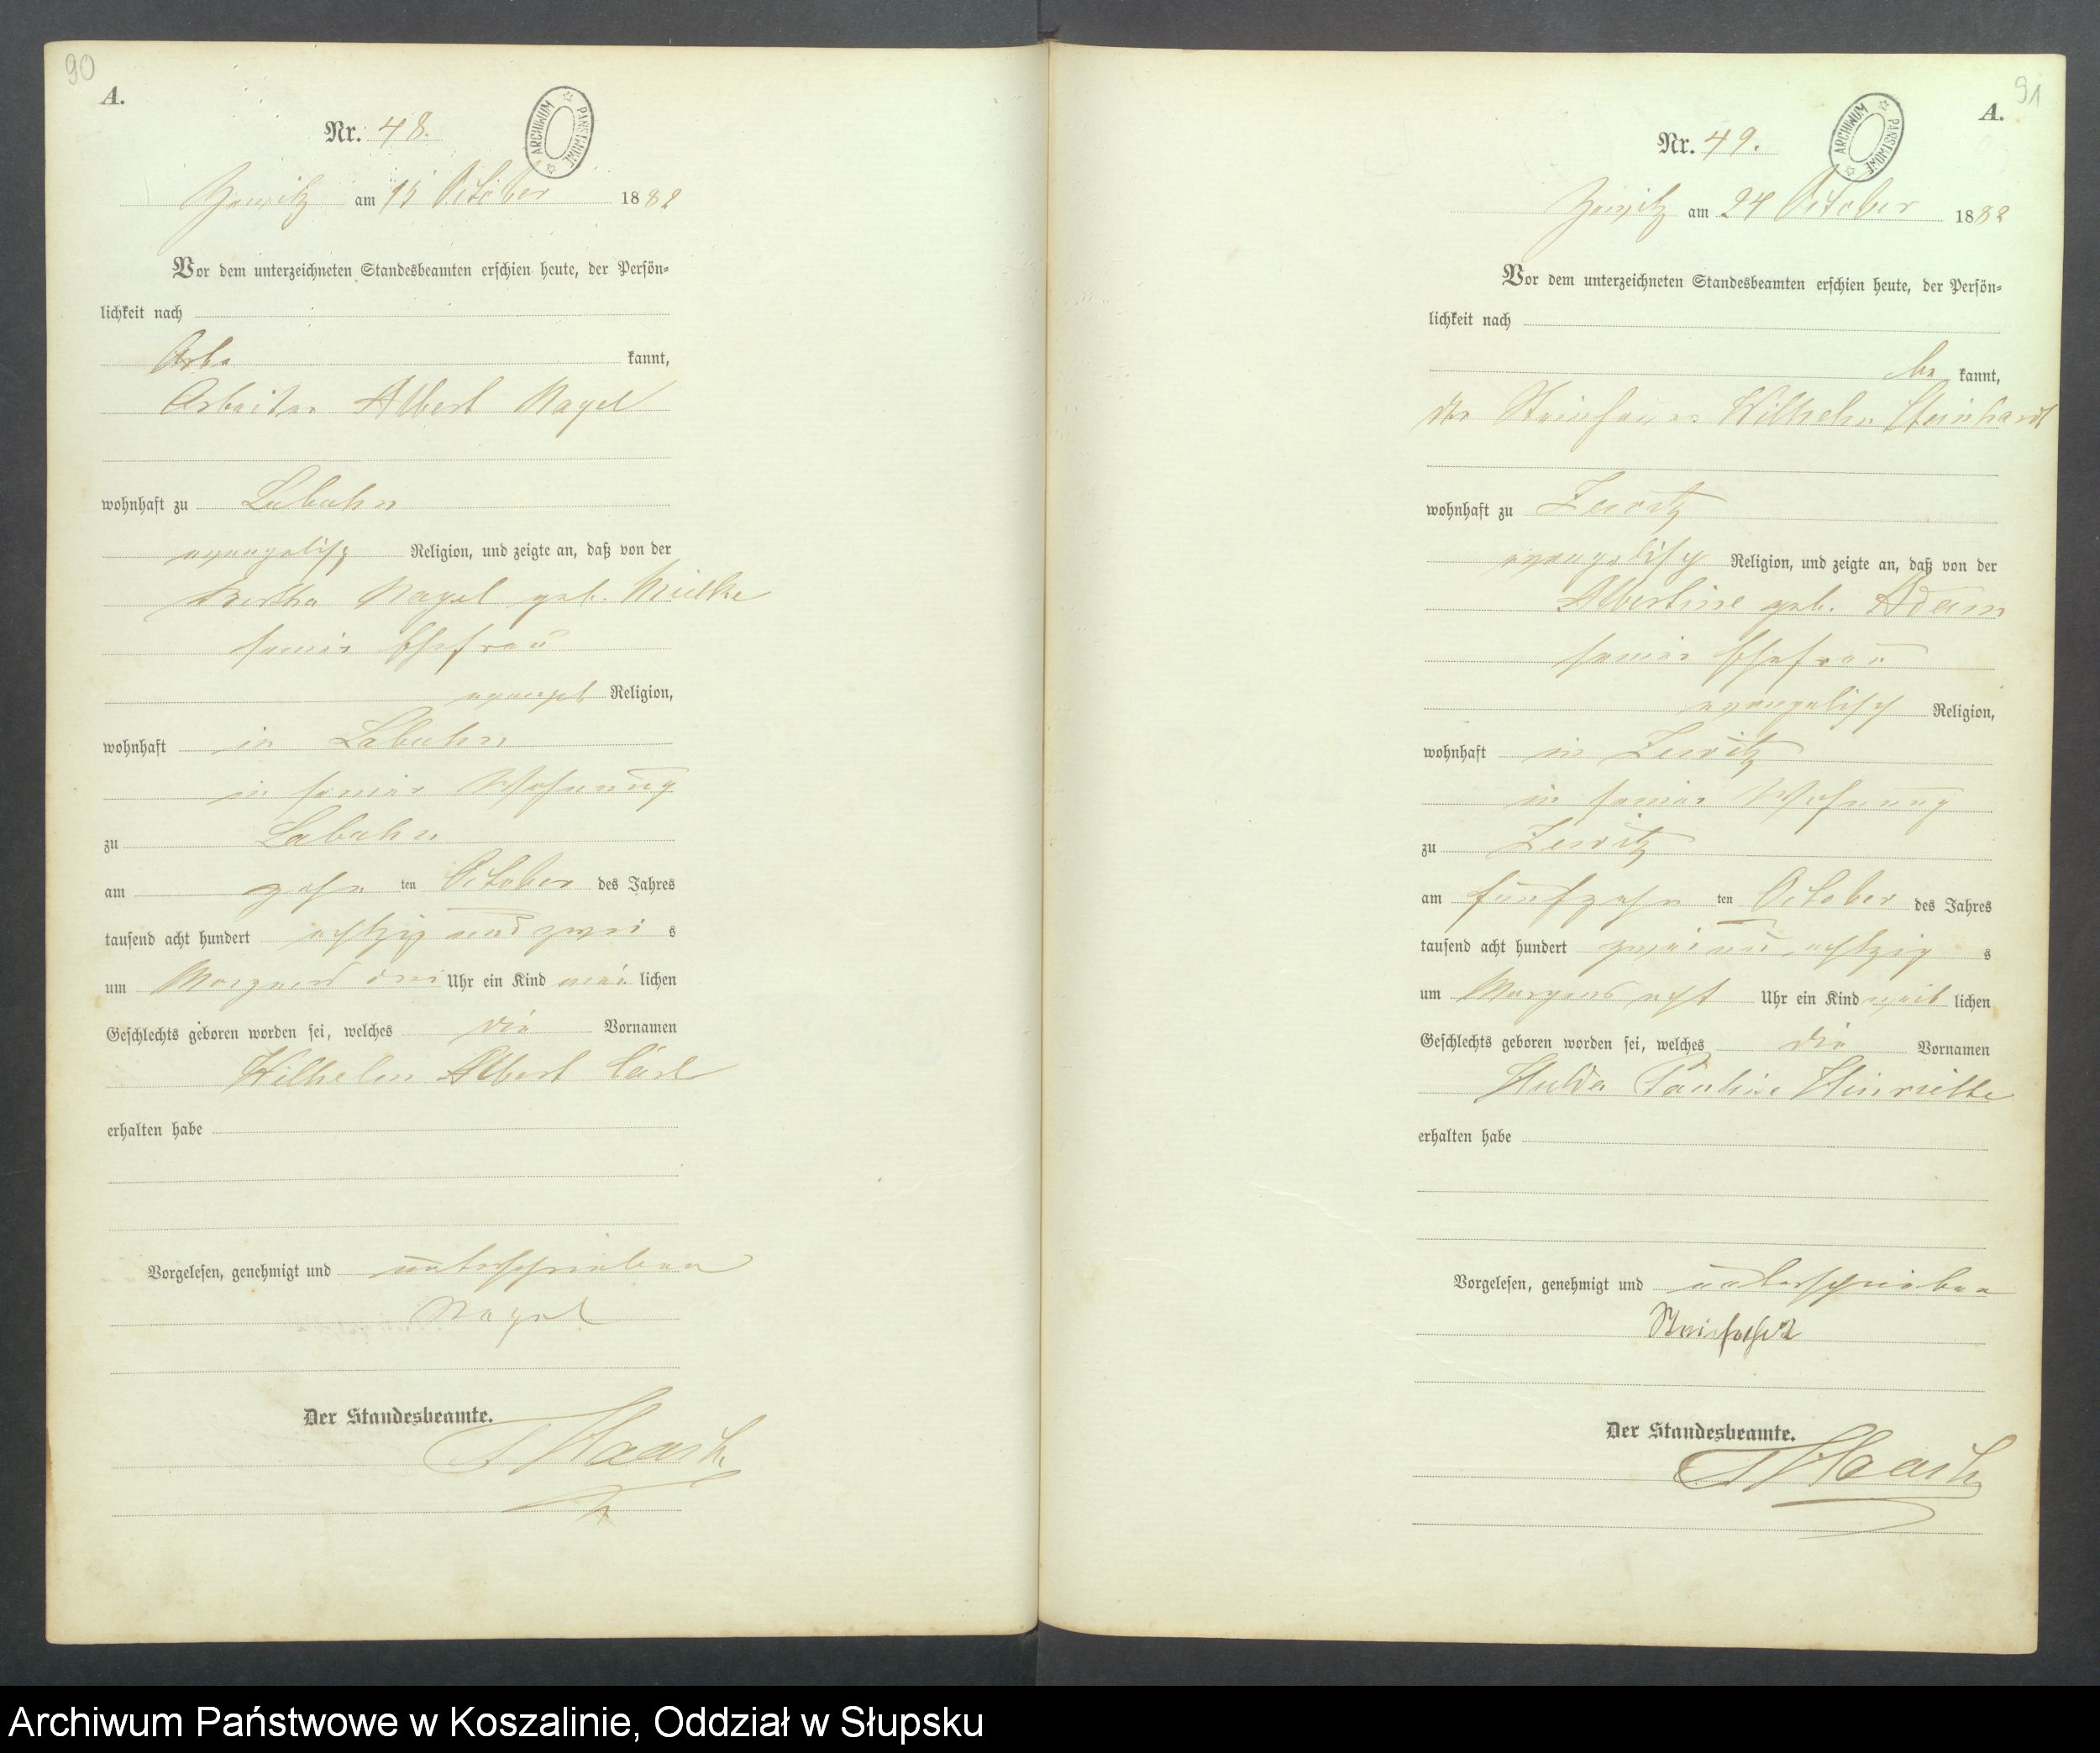 90
A.
Nr. 48.
ARCHIWUM PAŃSTWOWE
Zewitz am 15 October 1882
Vor dem unterzeichneten Standesbeamten erschien heute, der Persön-
lichkeit nach
Arbe kannt,
Arbeiter Albert Nagel
wohnhaft zu Labuhn
evangelisch Religion, und zeigte an, daß von der
Bertha Nagel geb. Mielke
seiner Ehefrau
Religion,
wohnhaft in Labuhn
in seiner Wohnung
zu Labuhn
am zehn ten October des Jahres
tausend acht hundert achtzig und zwei s
um Morgens drei Uhr ein Kind lichen
Geschlechts geboren worden sei, welches die Vornamen
Wilhelm Albert Carl
erhalten habe
Vorgelesen, genehmigt und unterschrieben
Nagel
Der Standesbeamte.
91
A.
Nr. 49.
ARCHIWUM PAŃSTWOWE
Zewitz am 24 October 1882
Vor dem unterzeichneten Standesbeamten erschien heute, der Persön-
lichkeit nach
be kannt,
der Wilhelm Steinhardt
wohnhaft zu Zewitz
evangelisch Religion, und zeigte an, daß von der
Albertine geb. Adam
seiner Ehefrau
evangelisch Religion,
wohnhaft in Zewitz
in seiner Wohnung
zu Zewitz
am fünfzehn ten October des Jahres
tausend acht hundert zwei und achtzig s
um Morgens acht Uhr ein Kind weib lichen
Geschlechts geboren worden sei, welches die Vornamen
Hulda Pauline Hinriette
erhalten habe
Vorgelesen, genehmigt und unterschrieben
Der Standesbeamte.
Archiwum Państwowe w Koszalinie, Oddział w Słupsku